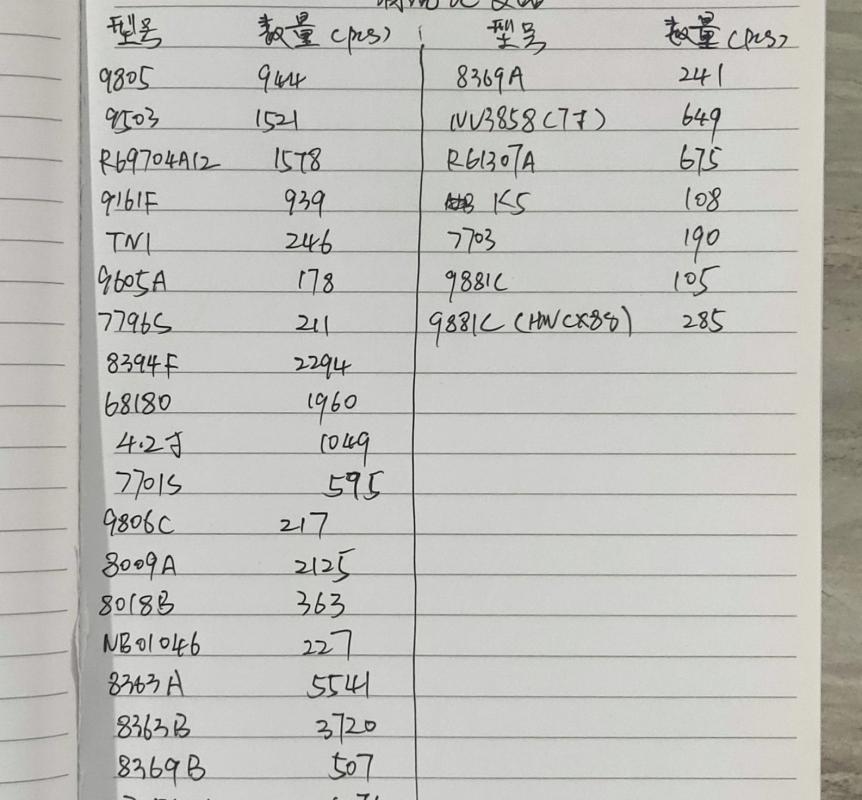 型号 数量(pcs)
9805 944
9503 1521
R69704A12 1578
9161F 939
TN1 246
9605A 178
7796S 211
8394F 2294
68180 1960
4.2寸 1049
7701S 595
9806C 217
8009A 2125
8018B 363
NB01046 227
8363A 5541
8363B 3720
8369B 507
型号 数量(pcs)
8369A 241
NV3858(7寸) 649
R61307A 675
K5 108
7703 190
9881C 105
9881C (HWCX88) 285